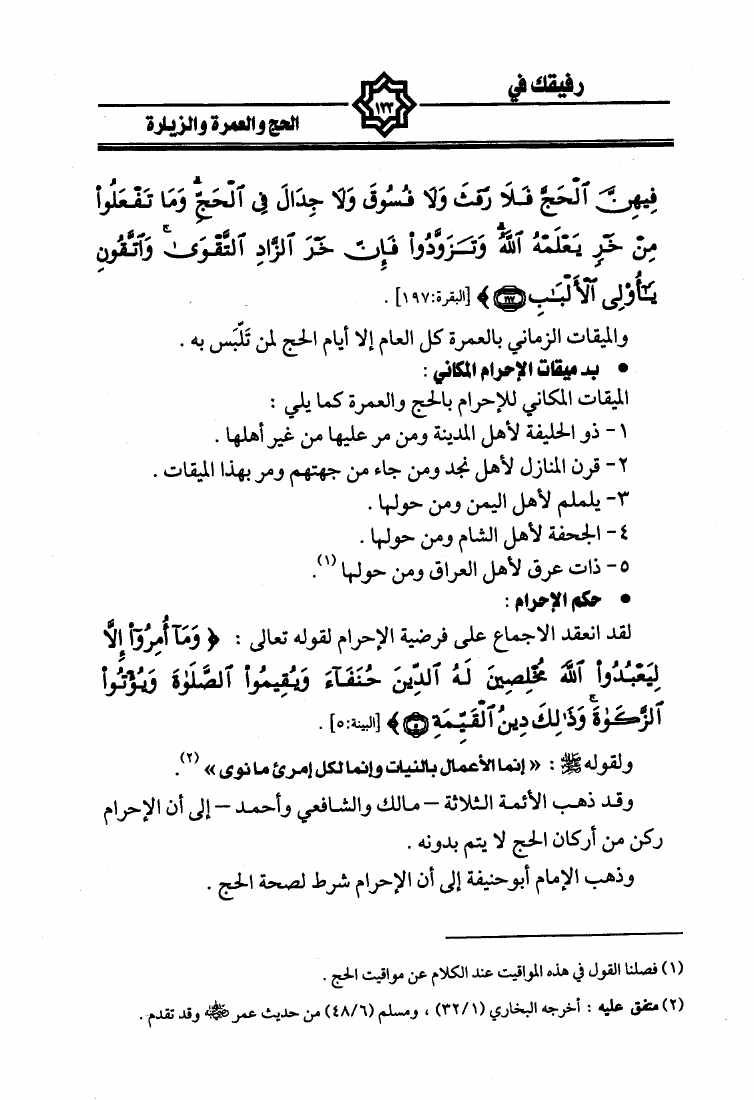 رفيقك في
١٢٢
الحج والعمرة والزيارة
فِيهِنَّ ٱلْحَجَّ فَلَا رَفَثَ وَلَا فُسُوقَ وَلَا جِدَالَ فِى ٱلْحَجِّ ۗ وَمَا تَفْعَلُوا۟
مِنْ خَيْرٍ يَعْلَمْهُ ٱللَّهُ ۗ وَتَزَوَّدُوا۟ فَإِنَّ خَيْرَ ٱلزَّادِ ٱلتَّقْوَىٰ ۚ وَٱتَّقُونِ
يَـٰٓأُو۟لِى ٱلْأَلْبَـٰبِ ﴿١٩٧﴾ ﴾ [البقرة:١٩٧] .
والميقات الزماني بالعمرة كل العام إلا أيام الحج لمن تَلَبَس به .
• بد ميقات الإحرام المكاني :
الميقات المكاني للإحرام بالحج والعمرة كما يلي :
١- ذو الحليفة لأهل المدينة ومن مر عليها من غير أهلها .
٢- قرن المنازل لأهل نجد ومن جاء من جهتهم ومر بهذا الميقات .
٣- يلملم لأهل اليمن ومن حولها .
٤- الجحفة لأهل الشام ومن حولها .
٥- ذات عرق لأهل العراق ومن حولها (١).
• حكم الإحرام :
لقد انعقد الاجماع على فرضية الإحرام لقوله تعالى : ﴿ وَمَآ أُمِرُوٓا۟ إِلَّا
لِيَعْبُدُوا۟ ٱللَّهَ مُخْلِصِينَ لَهُ ٱلدِّينَ حُنَفَآءَ وَيُقِيمُوا۟ ٱلصَّلَوٰةَ وَيُؤْتُوا۟
ٱلزَّكَوٰةَ ۚ وَذَٰلِكَ دِينُ ٱلْقَيِّمَةِ ﴿٥﴾ ﴾ [البينة:٥] .
ولقوله ﷺ : « إنما الأعمال بالنيات وإنما لكل إمرئ ما نوى » (٢).
وقد ذهب الأئمة الثلاثة – مالك والشافعي وأحمد – إلى أن الإحرام
ركن من أركان الحج لا يتم بدونه .
وذهب الإمام أبوحنيفة إلى أن الإحرام شرط لصحة الحج .
(١) فصلنا القول في هذه المواقيت عند الكلام عن مواقيت الحج .
(٢) متفق عليه : أخرجه البخاري (٣٢/١) ، ومسلم (٤٨/٦) من حديث عمر رضي الله عنه وقد تقدم .